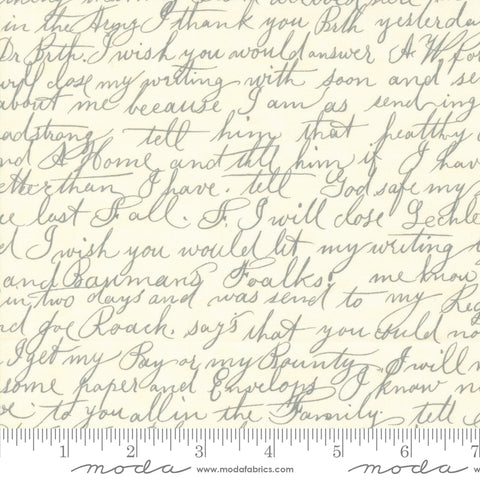 in the Army I thank you Brth yesterda
Dr Brth. I wish you would answer A W for
will close my writing with soon and se
about me because I am as send ing
adstrong tell him that pealthy
nd A Home and till him if I hav
etter than I have. tell God safe my
last Fall. F. I will close Lechle
d I wish you would let my writing
and Baumans Foalks, me know
in two days and was send to my Reg
nd Joe Roach. says that you could no
I get my Pay or my Bounty I will
some paper and Envelops I know no
to you all in the Family. tell
1 2 3 4 5 6 7
moda www.modafabrics.com moda